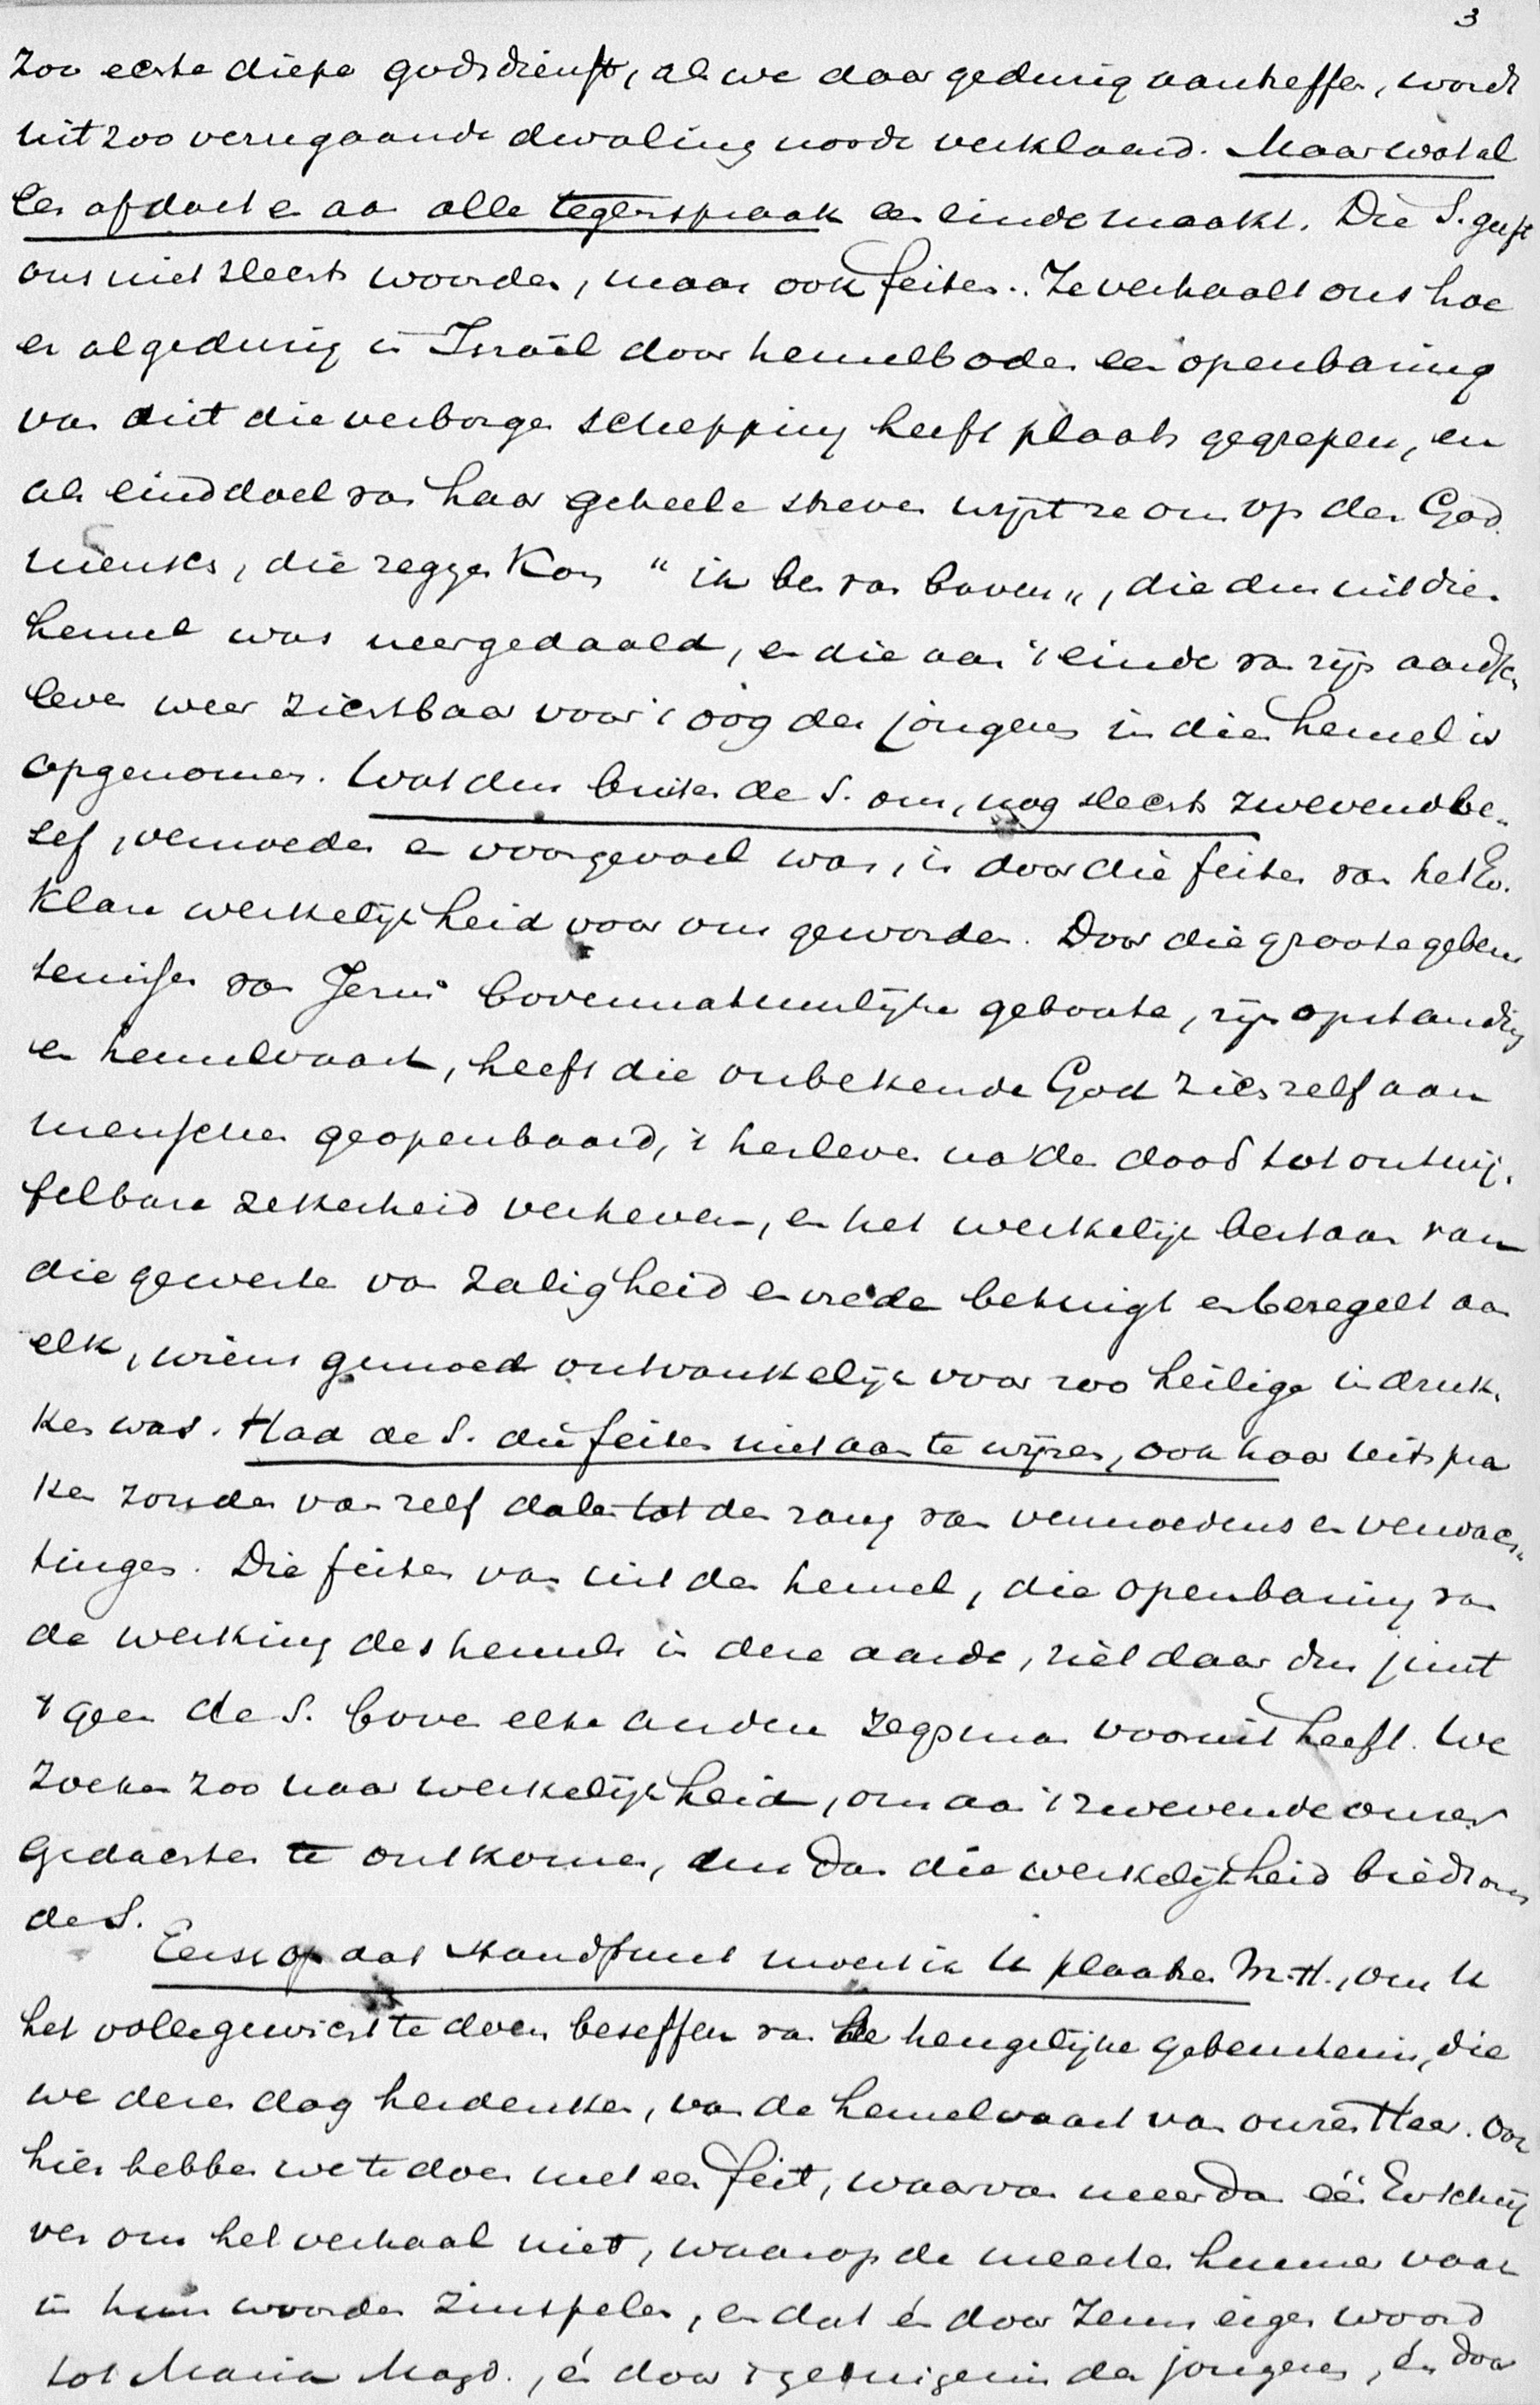 3
Zoo echte diepe godsdienst, als we daar gedurig aantreffen, wordt
uit zoo verregaande dwaling noode verklaard. Maar wat al
les afdoet en aan alle tegenspraak een einde maakt. Die S. geeft
ons niet slechts woorden, maar ook feiten. Ze verhaalt ons hoe
er al gedurig in Israël door hemelboden een openbaring
van uit die verborgen schepping heeft plaats gegrepen, en
als einddoel van haar geheele streven wijst ze ons op den God
mensch, die zeggen kon "ik ben van boven", die dus uit dien
hemel was neergedaald, en die aan 't einde van zijn aardsch
leven weer zichtbaar voor 't oog der jongeren in dien hemel is
opgenomen. Wat dus buiten de S. om, nog slechts zwevend be-
sef, vermoeden en voorgevoel was, is door die feiten van het Ev.
klare werkelijkheid voor ons geworden. Door die groote gebeur
tenissen van Jezus' bovennatuurlijke geboorte, zijn opstanding
en hemelvaart, heeft die onbekende God zich zelf aan
menschen geopenbaard, 't herleven na den dood tot ontwij-
felbare zekerheid verheven, en het werkelijk bestaan van
die gewesten van zaligheid en vrede betuigt en bezegelt aan
elk, wiens gemoed ontvankelijk voor zoo heilige indruk-
ken was. Had de S. die feiten niet aan te wijzen, ook haar uitspra
ken zouden van zelf dalen tot den rang van vermoedens en verwach-
tingen. Die feiten van uit den hemel, die openbaring van
de werking des hemels in deze aarde, ziet daar dus juist
't geen de S. boven elke andere zegsman vooruit heeft. We
zoeken zoo naar werkelijkheid, om aan 't zwevende onzer
gedachten te ontkomen, dus dan die werkelijkheid biedt ons
de S.
Eerst op dat standpunt moest ik U plaatsen M.H., om U
het volle gewicht te doen beseffen van de heugelijke gebeurtenis, die
we dezen dag herdenken, van de hemelvaart van onzen Heer. Ook
hier hebben we te doen met een feit, waarvan meer dan één Ev.schrij
ver ons het verhaal biedt, waarop de meesten hunner vaak
in hun woorden zinspelen, en dat én door Jezus eigen woord
tot Maria Magd., én door 't getuigenis der jongeren, én door